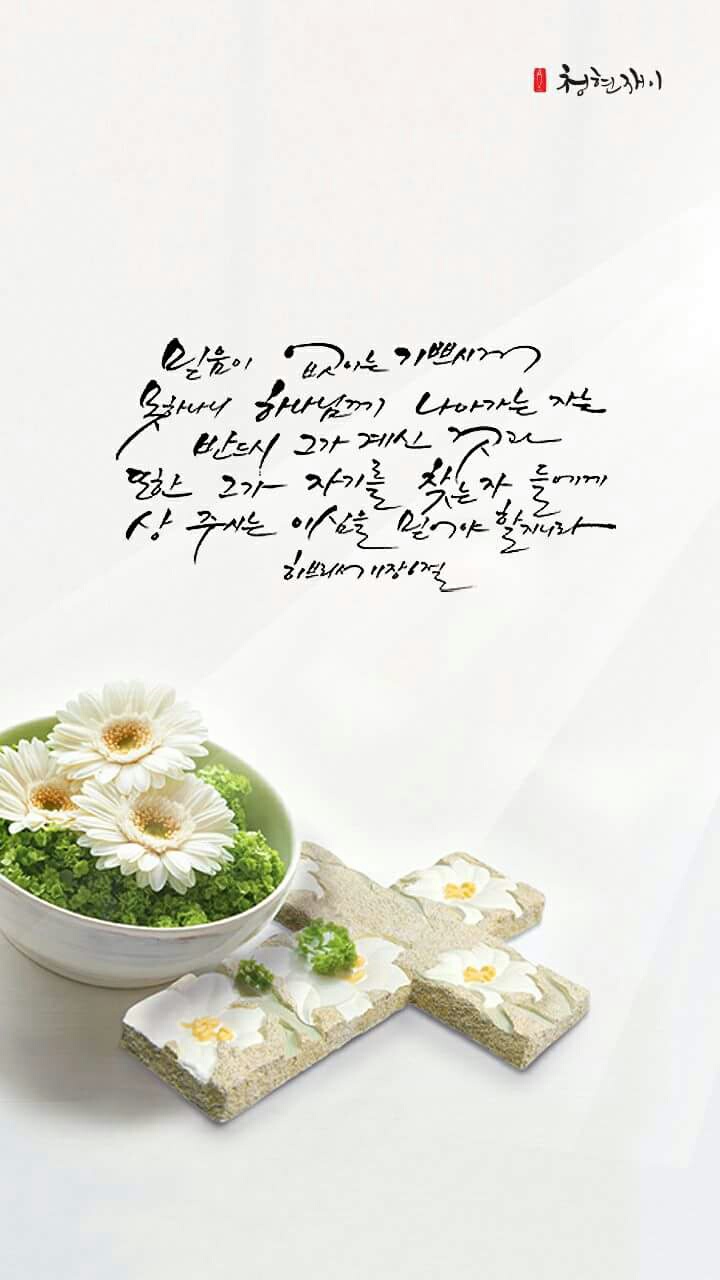 청현재이
믿음이 없이는 기쁘시게
못하나니 하나님께 나아가는 자는
반드시 그가 계신 것과
또한 그가 자기를 찾는 자 들에게
상 주시는 이심을 믿어야 할지니라
히브리서 11장 6절